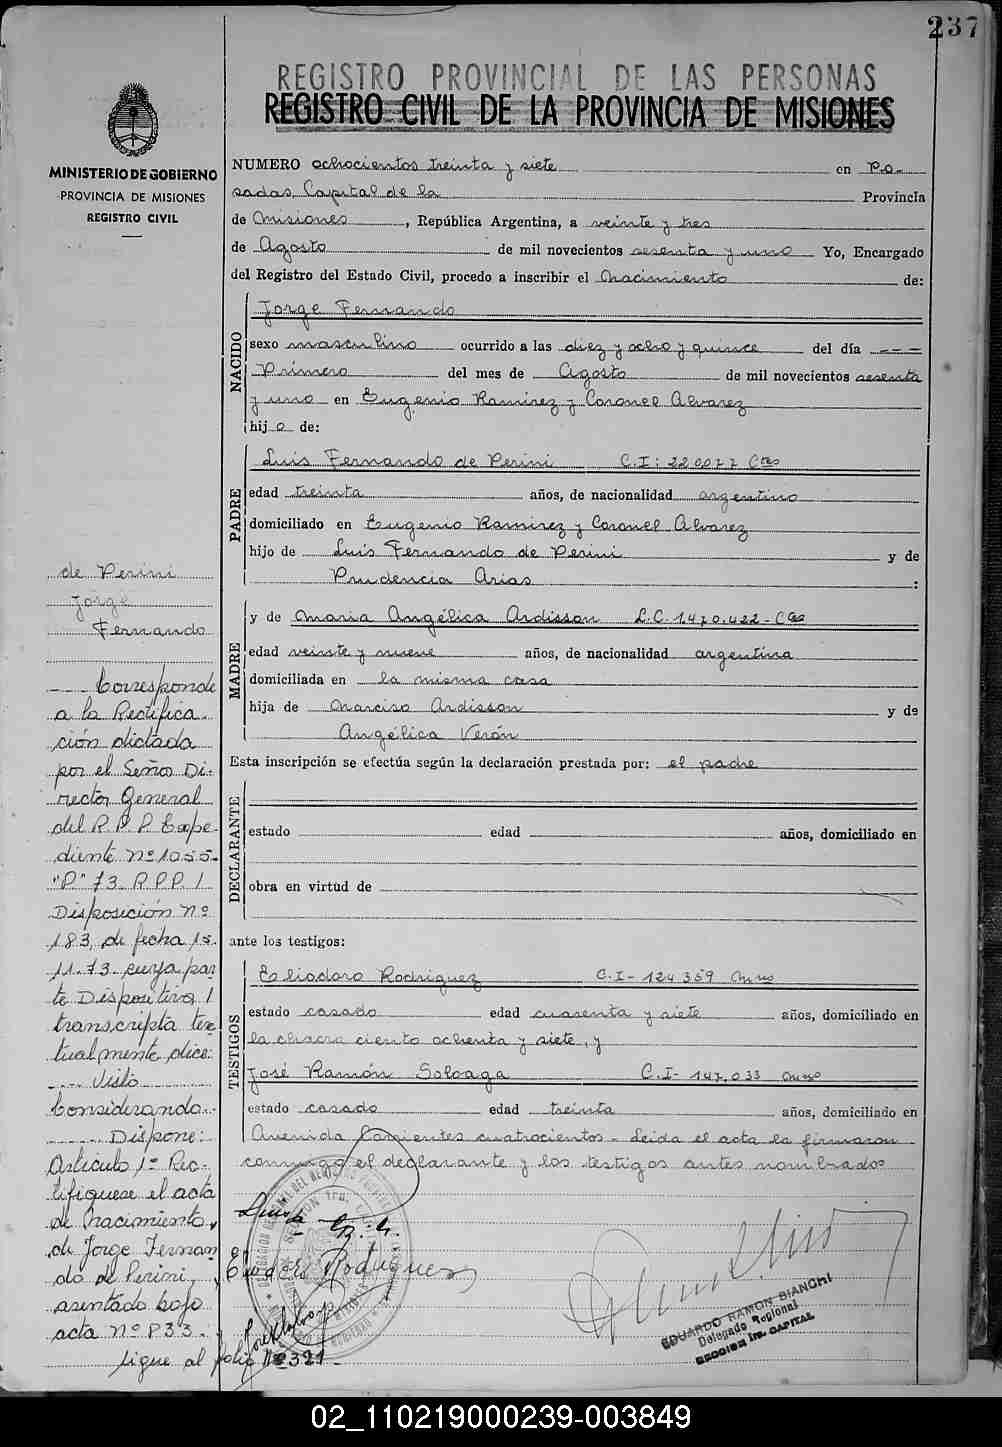 237
REGISTRO PROVINCIAL DE LAS PERSONAS
REGISTRO CIVIL DE LA PROVINCIA DE MISIONES
MINISTERIO DE GOBIERNO
PROVINCIA DE MISIONES
REGISTRO CIVIL
NUMERO ochocientos treinta y siete en Po-
sadas, Capital de la Provincia
de Misiones, República Argentina, a veinte y tres
de Agosto de mil novecientos sesenta y uno Yo, Encargado
del Registro del Estado Civil, procedo a inscribir el Nacimiento de:
NACIDO
Jorge Fernando
sexo masculino ocurrido a las diez y ocho y quince del día ---
Primero del mes de Agosto de mil novecientos sesenta
y uno en Eugenio Ramirez y Coronel Alvarez
hijo de:
PADRE
Luis Fernando de Perini C.I: 220077 Ctes
edad treinta años, de nacionalidad argentino
domiciliado en Eugenio Ramirez y Coronel Alvarez
hijo de Luis Fernando de Perini y de
Prudencia Arias :
MADRE
y de Maria Angélica Ardisson L.C. 1.470.422 - Ctes
edad veinte y nueve años, de nacionalidad argentina
domiciliada en la misma casa
hija de Narciso Ardisson y de
Angélica Verón
Esta inscripción se efectúa según la declaración prestada por: el padre
DECLARANTE
estado edad años, domiciliado en
obra en virtud de
ante los testigos:
TESTIGOS
Eliodoro Rodriguez C.I - 124359 Mnes
estado casado edad cuarenta y siete años, domiciliado en
la chacra ciento ochenta y siete, y
José Ramón Soloaga C.I - 147.033 Mnes
estado casado edad treinta años, domiciliado en
Avenida Corrientes cuatrocientos - Leida el acta la firmaron
conmigo el declarante y los testigos antes nombrados
Eliodoro Rodriguez
EDUARDO RAMON BIANCHI
Delegado Regional
SECCION 1ra. CAPITAL
de Perini
Jorge
Fernando
--- Corresponde
a la Rectifica-
ción dictada
por el Señor Di-
rector General
del R.P.P. Expe-
diente Nº 1055-
"P" 73 R.P.P. /
Disposición Nº
183, de fecha 15-
11-73 cuya par
te Dispositiva /
transcripta tex
tualmente dice:
---- Visto
Considerando..
------ Dispone:
Artículo 1º Rec-
tifíquese el acta
de nacimiento,
de Jorge Fernan
do de Perini,
asentado bajo
acta Nº 833. y
sigue al folio Nº 321-
02_110219000239-003849